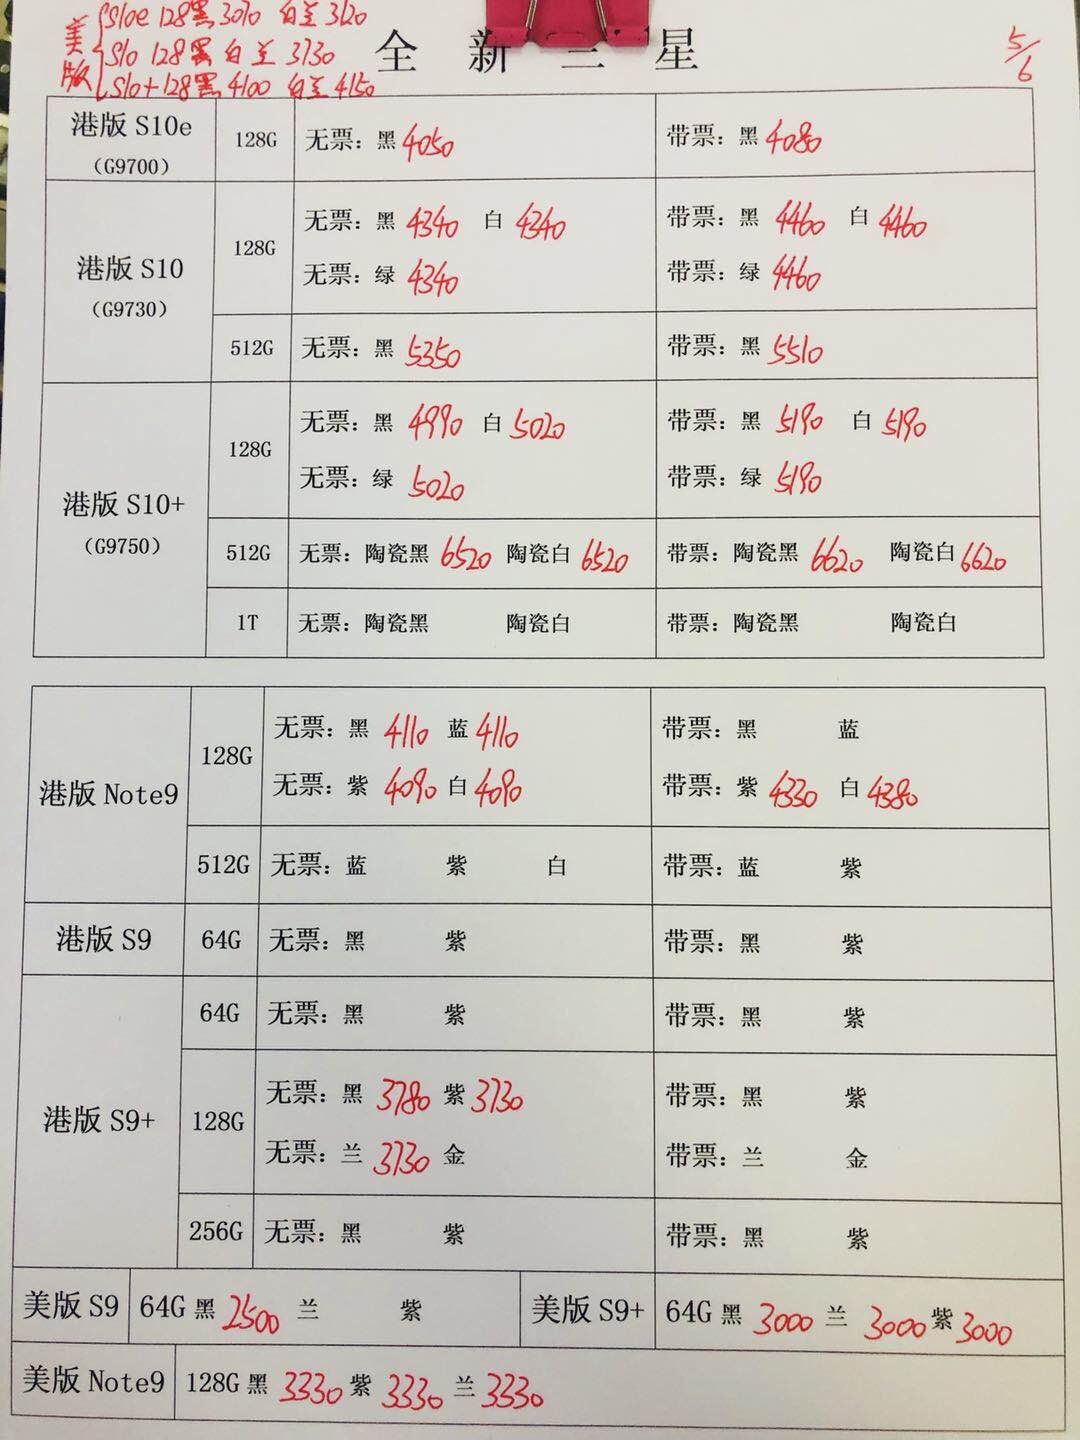 美版
S10e 128黑 3070 白兰 3120
S10 128黑白兰 3730
S10+128黑 4100 白兰 4150
全新三星
5/6
港版 S10e
(G9700)
128G 无票：黑 4050 带票：黑 4080
港版 S10
(G9730)
128G
无票：黑 4340 白 4340 带票：黑 4460 白 4460
无票：绿 4340 带票：绿 4460
512G 无票：黑 5350 带票：黑 5510
港版 S10+
(G9750)
128G
无票：黑 4990 白 5020 带票：黑 5190 白 5190
无票：绿 5020 带票：绿 5190
512G 无票：陶瓷黑 6520 陶瓷白 6520 带票：陶瓷黑 6620 陶瓷白 6620
1T 无票：陶瓷黑 陶瓷白 带票：陶瓷黑 陶瓷白
港版 Note9
128G
无票：黑 4110 蓝 4110 带票：黑 蓝
无票：紫 4090 白 4090 带票：紫 4330 白 4380
512G 无票：蓝 紫 白 带票：蓝 紫
港版 S9 64G 无票：黑 紫 带票：黑 紫
港版 S9+
64G 无票：黑 紫 带票：黑 紫
128G
无票：黑 3780 紫 3730 带票：黑 紫
无票：兰 3730 金 带票：兰 金
256G 无票：黑 紫 带票：黑 紫
美版 S9 64G 黑 2500 兰 紫 美版 S9+ 64G 黑 3000 兰 3000 紫 3000
美版 Note9 128G 黑 3330 紫 3330 兰 3330